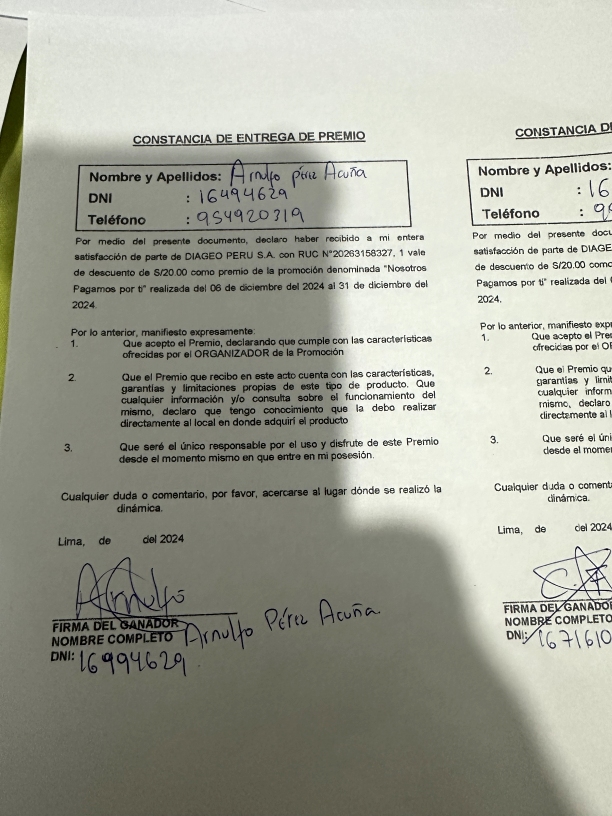 CONSTANCIA DE ENTREGA DE PREMIO
Nombre y Apellidos: Arnulfo Pérez Acuña
DNI : 16494629
Teléfono : 954920319
Por medio del presente documento, declaro haber recibido a mi entera
satisfacción de parte de DIAGEO PERU S.A. con RUC N°20263158327, 1 vale
de descuento de S/20.00 como premio de la promoción denominada "Nosotros
Pagamos por ti" realizada del 06 de diciembre del 2024 al 31 de diciembre del
2024.
Por lo anterior, manifiesto expresamente:
1. Que acepto el Premio, declarando que cumple con las características
ofrecidas por el ORGANIZADOR de la Promoción
2. Que el Premio que recibo en este acto cuenta con las características,
garantías y limitaciones propias de este tipo de producto. Que
cualquier información y/o consulta sobre el funcionamiento del
mismo, declaro que tengo conocimiento que la debo realizar
directamente al local en donde adquirí el producto
3. Que seré el único responsable por el uso y disfrute de este Premio
desde el momento mismo en que entre en mi posesión.
Cualquier duda o comentario, por favor, acercarse al lugar dónde se realizó la
dinámica.
Lima, de del 2024
Arnulfo
FIRMA DEL GANADOR
NOMBRE COMPLETO Arnulfo Pérez Acuña
DNI: 16994629
CONSTANCIA DE
Nombre y Apellidos:
DNI : 16
Teléfono : 9
Por medio del presente
satisfacción de parte de DIAGE
de descuento de S/20.00 como
Pagamos por ti" realizada del
2024.
Por lo anterior, manifiesto
1. Que acepto el
ofrecidas por el
2. Que el Premio
garantías y
cualquier
mismo, declaro
directamente al
3. Que seré el
desde el
Cualquier duda o
Lima, de del
FIRMA DEL GANADOR
NOMBRE COMPLETO
DNI: 1671610